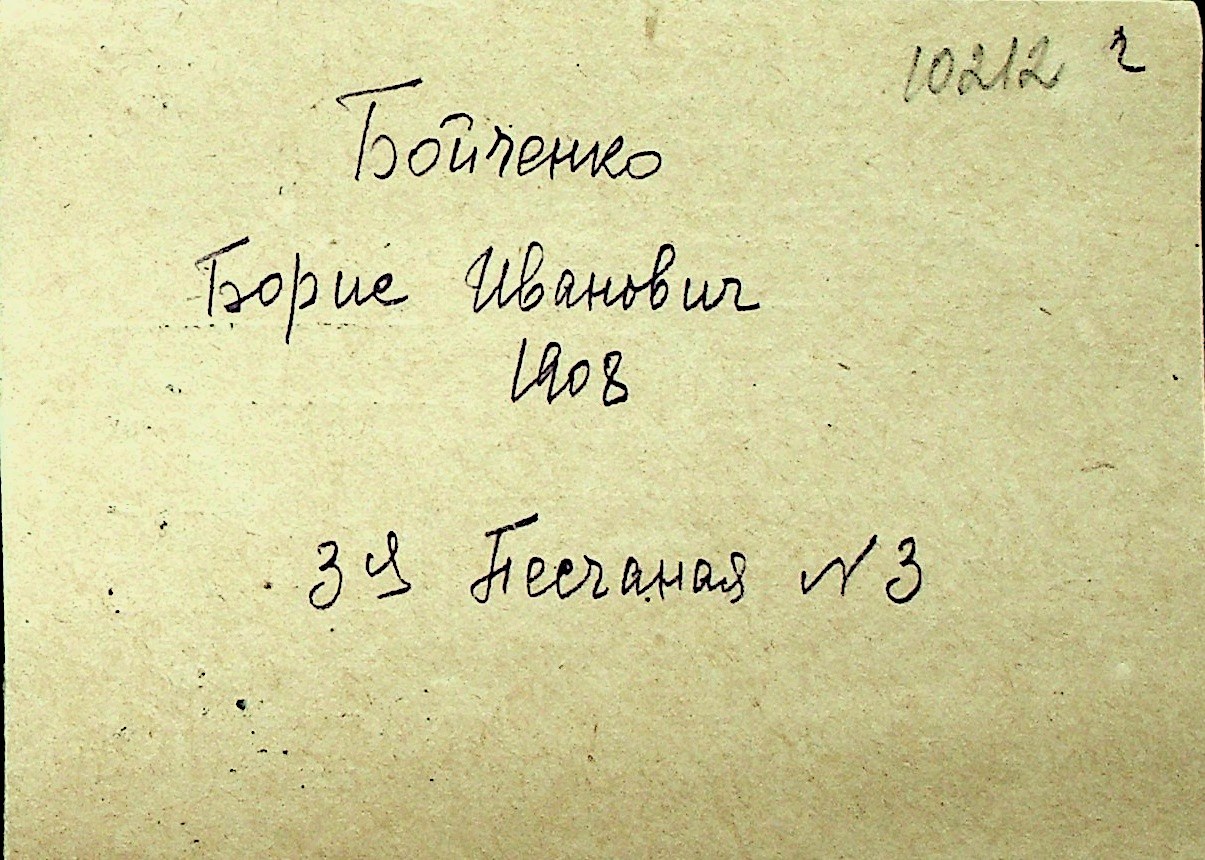 10212 г
Бойченко
Борис Иванович
1908
3я Песчаная № 3